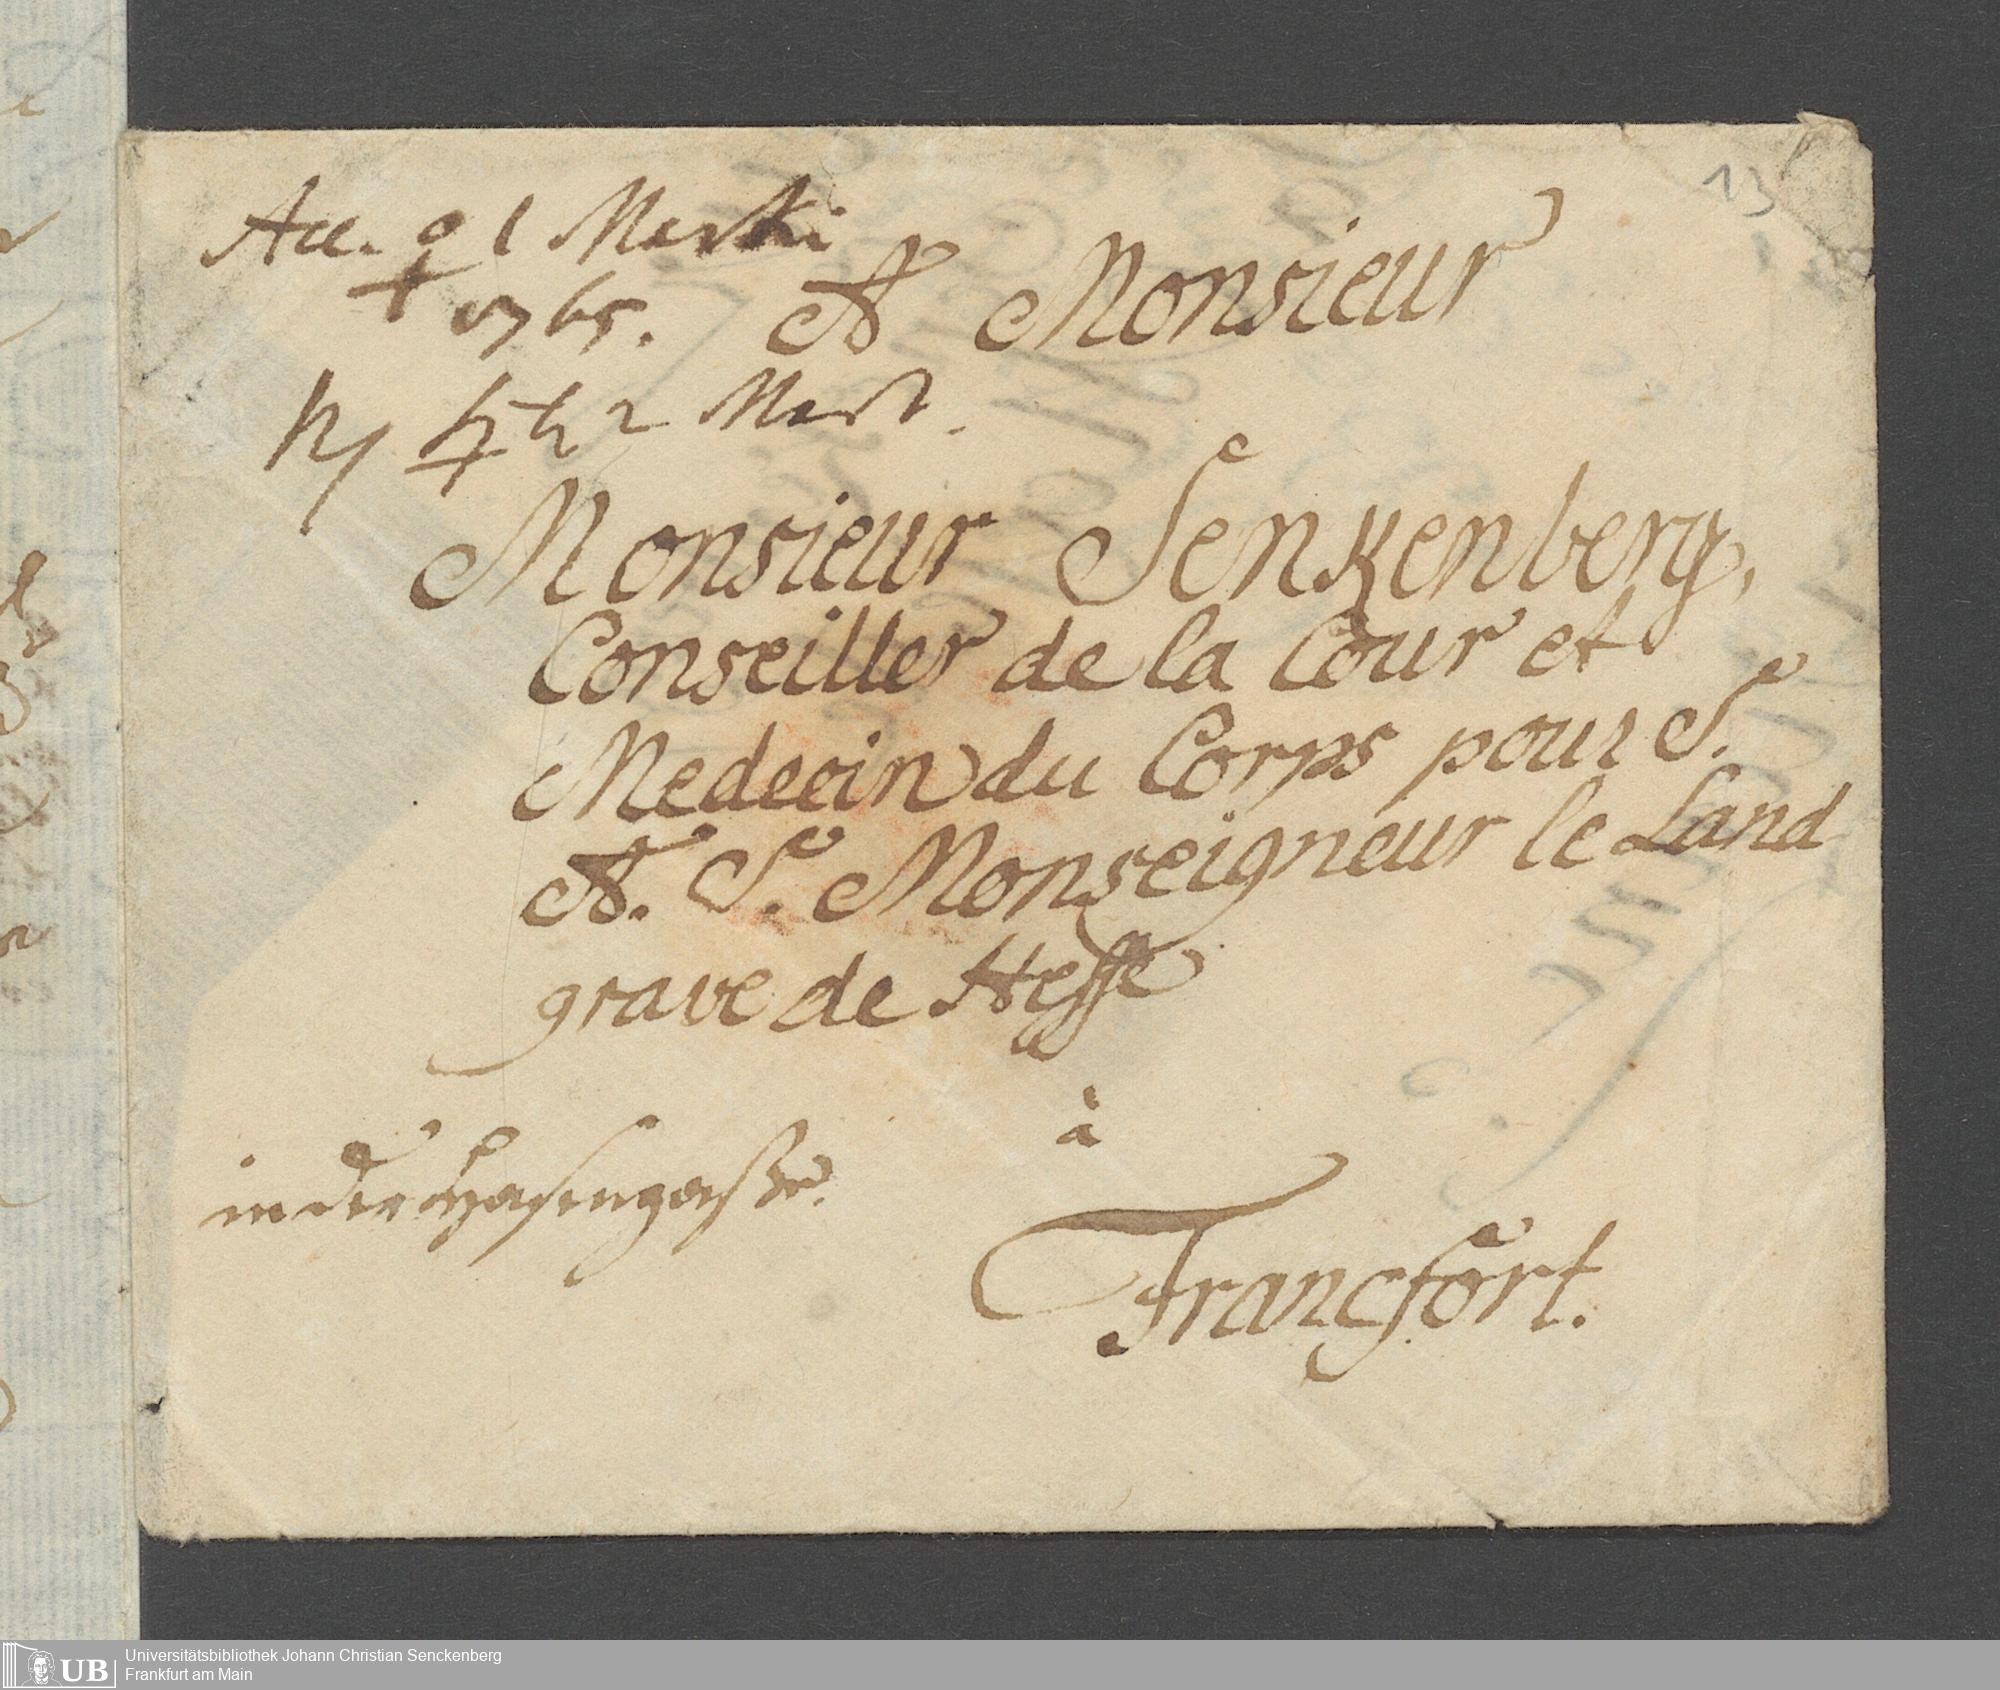 13
Acc. ♀ 1 Martii
1765.
A Monsieur
♄ 2 Mart.
Monsieur Senkenberg,
Conseiller de la Cour et
Medecin du Corps pour S.
A. S. Monseigneur le Land
grave de Hesse
à
in der Hasengaße.
Francfort.
UB
Universitätsbibliothek Johann Christian Senckenberg
Frankfurt am Main